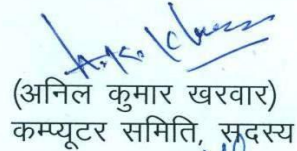 (अनिल कुमार खरवार)
कम्प्यूटर समिति, सदस्य